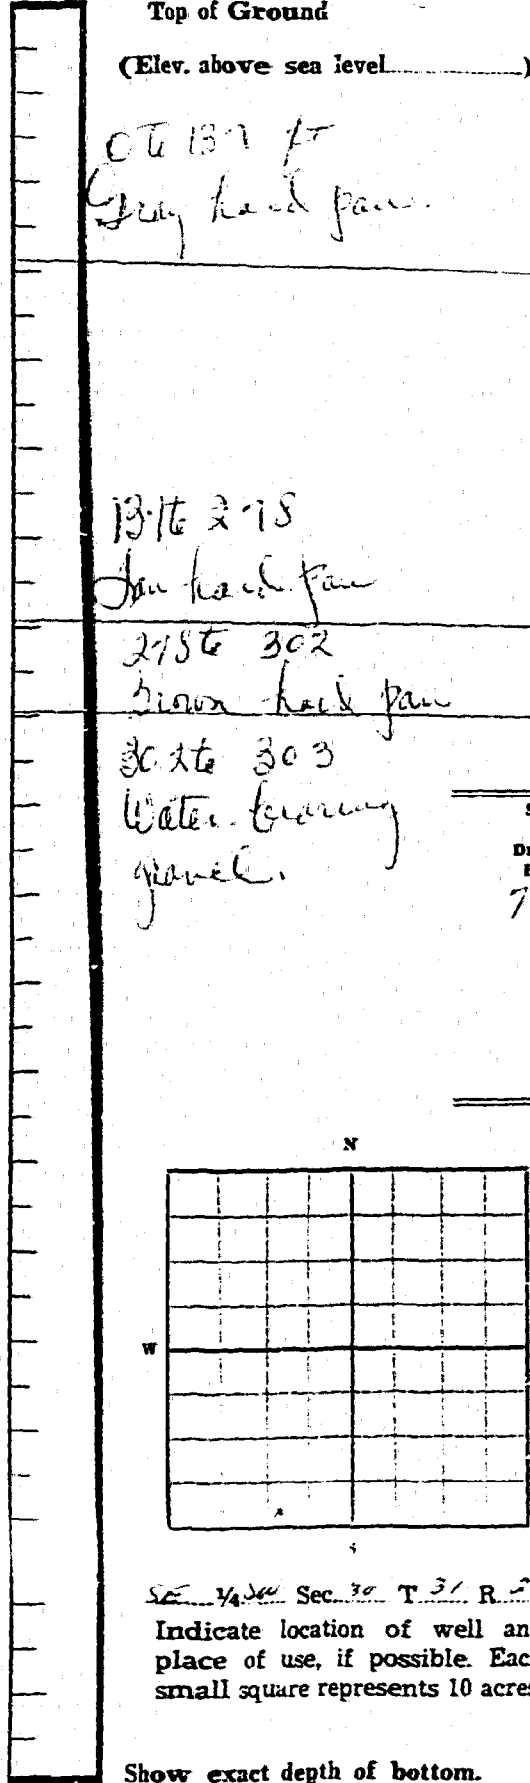 Top of Ground
(Elev. above sea level..........................)
0 to 137 ft
Gray hard pan.
137 to 278
Tan hard pan
278 to 302
Brown hard pan
302 to 303
Water bearing
gravel.
N
W
S
SE 1/4 SW Sec. 30 T 31 R
Indicate location of well an
place of use, if possible. Eac
small square represents 10 acres
Show exact depth of bottom.